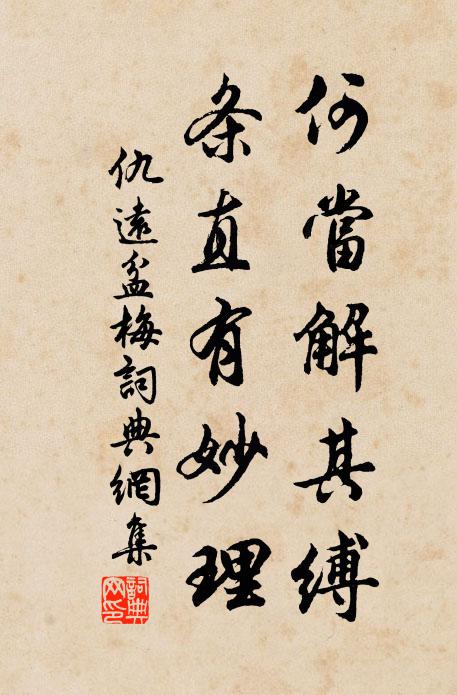 何當解其縛
条直有妙理
仇遠盆梅詞典網集
詞典
网印